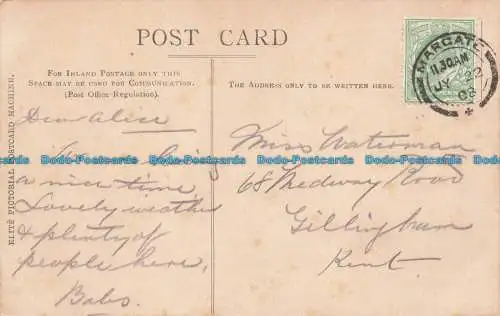 POST CARD
FOR INLAND POSTAGE ONLY THIS
SPACE MAY BE USED FOR COMMUNICATION.
(Post Office Regulation).
THE ADDRESS ONLY TO BE WRITTEN HERE.
ELITE PICTORIAL POSTCARD MACHINE.
MARGATE
11.30AM
JY 22
08
Dear Alice
a nice time
Lovely weather
& plenty of
people here,
Babs.
Miss Waterman
68 Medway Road
Gillingham
Kent.
Dodo-Postcards Dodo-Postcards Dodo-Postcards Dodo-Postcards Dodo-Postcards